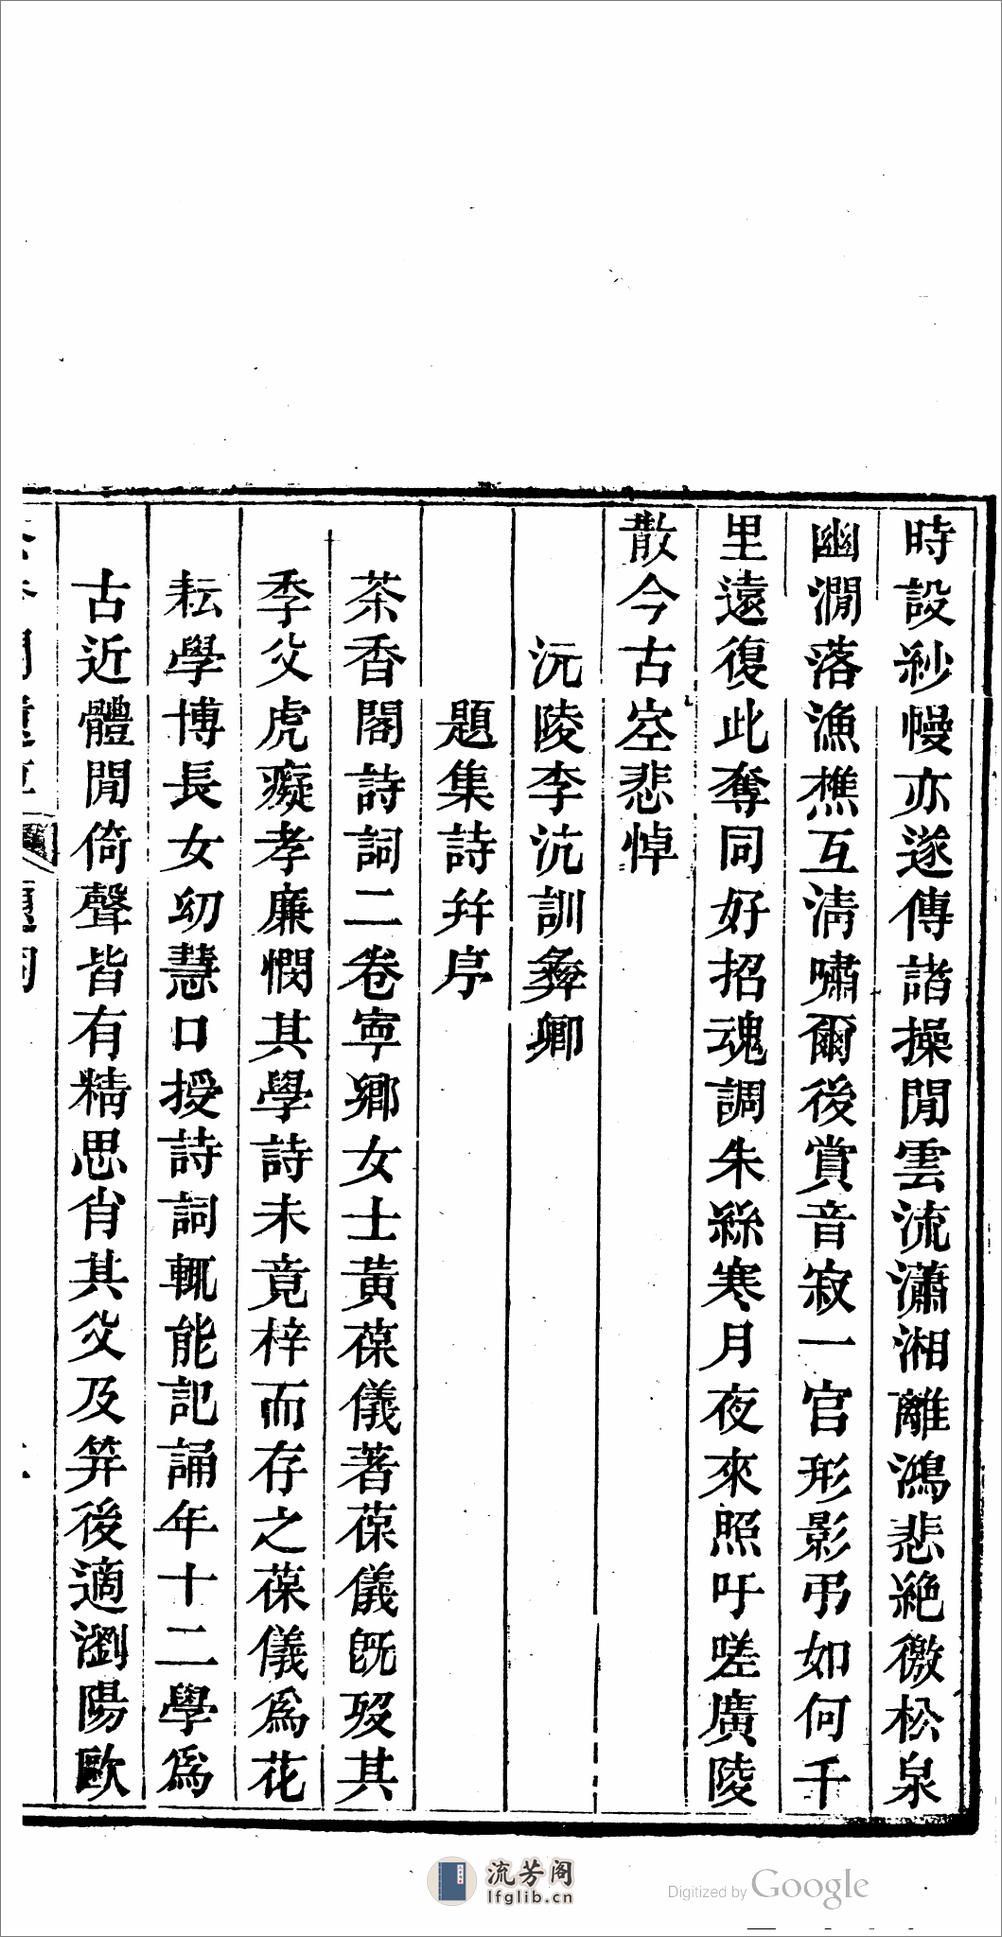 時設紗幔亦遂傳諧操閒雲流瀟湘離鴻悲絕徼松泉
幽澗落漁樵互淸嘯爾後賞音寂一官形影弔如何千
里遠復此奪同好招魂調朱絲寒月夜來照吁嗟廣陵
散今古空悲悼
沅陵李沆訓彝卿
題集詩并序
茶香閣詩詞二卷寧鄉女士黃葆儀著葆儀旣歿其
季父虎癡孝廉憫其學詩未竟梓而存之葆儀爲花
耘學博長女幼慧口授詩詞輒能記誦年十二學爲
古近體閒倚聲皆有精思肖其父及笄後適瀏陽歐
流芳阁
lfglib.cn
Digitized by Google